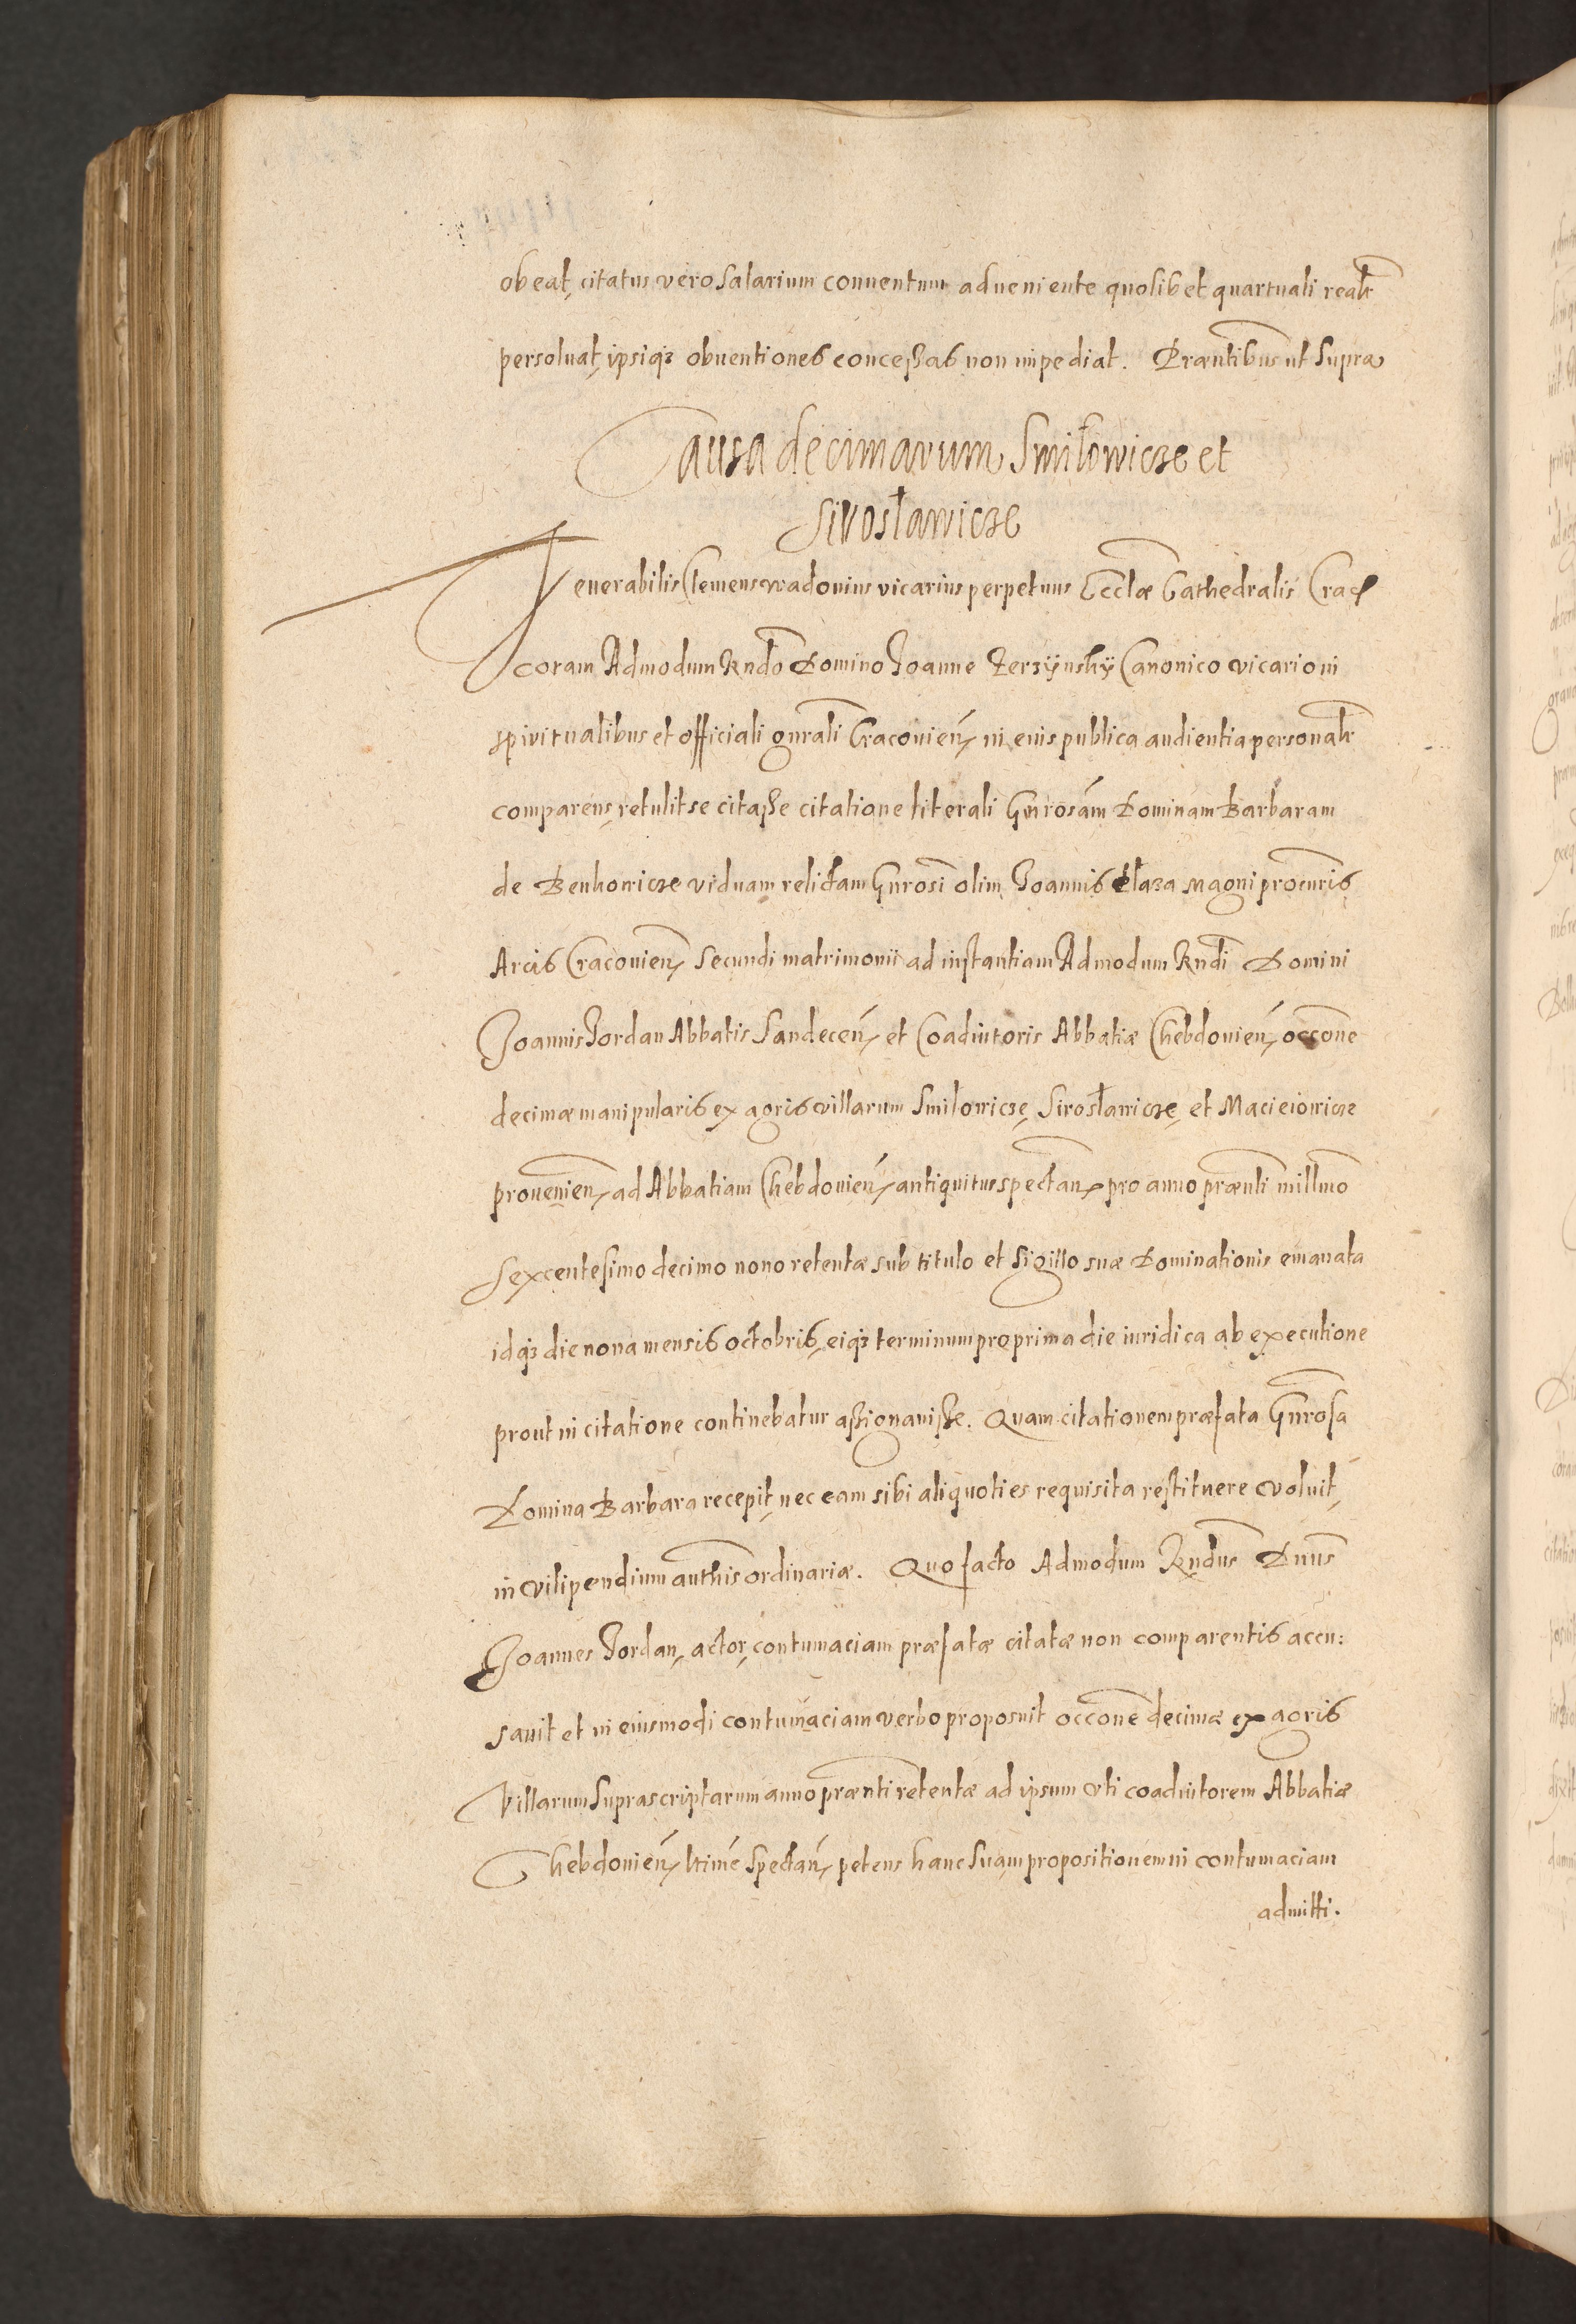 obeat, citatus vero salarium conuentum adueniente quolibet quartuali realr
persoluat, ipsiq3 obuentiones conceßas non impediat. Præntibus ut supra
Causa decimarum Smiłowicze et
Sirosławicze
Venerabilis Clemens Wadouius vicarius perpetuus Ecclæ Cathedralis Crac
coram Admodum Rndo Domino Joanne Zerzÿnskÿ Canonico vicario in
spiritualibus et officiali gnrali Cracouien, in eius publica audientia personalr
comparens, retulit se citaße citatione literali Gnrosam Dominam Barbaram
de Benkowicze viduam relictam Gnrosi olim Joannis Płaza magni procuris
Arcis Cracouien, secundi matrimonii ad instantiam Admodum Rndi Domini
Joannis Jordan Abbatis Sandecen, et Coadiutoris Abbatiæ Chebdouien, occone
decimæ manipularis ex agris villarum Smiłowicze, Sirosławicze, et Macieiowicze
prouenien, ad Abbatiam Chebdouien, antiquitus spectan, pro anno prænti millmo
sexcentesimo decimo nono retentæ sub titulo et sigillo suæ Dominationis emanata
idq3 die nona mensis octobris, eiq3 terminum pro prima die iuridica ab executione
prout in citatione continebatur aßignauiße. Quam citationem præfata Gnrosa
Domina Barbara recepit, nec eam sibi aliquoties requisita restituere voluit,
in vilipendium authis ordinariæ. Quo facto Admodum Rndus Dnus
Joannes Jordan, actor, contumaciam præfatæ citatæ non comparentis accu:
sauit et in eiusmodi contumaciam verbo proposuit occone decimæ ex agris
Villarum suprascriptarum anno prænti retentæ ad ipsum vti coadiutorem Abbatiæ
Chebdouien, ltime spectan, petens hanc suam propositionem in contumaciam
admitti.